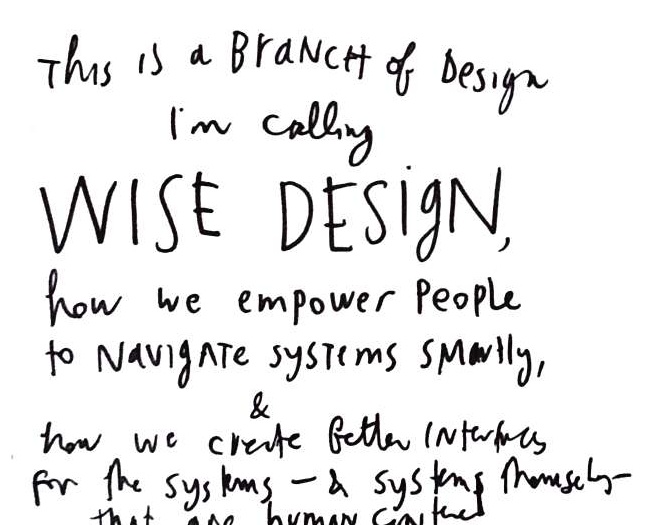 This is a Branch of Design
I'm calling
WISE DESIGN,
how we empower People
to Navigate systems smartly,
&
how we create Better Interfaces
for the systems – & systems themselves –
that are human centered